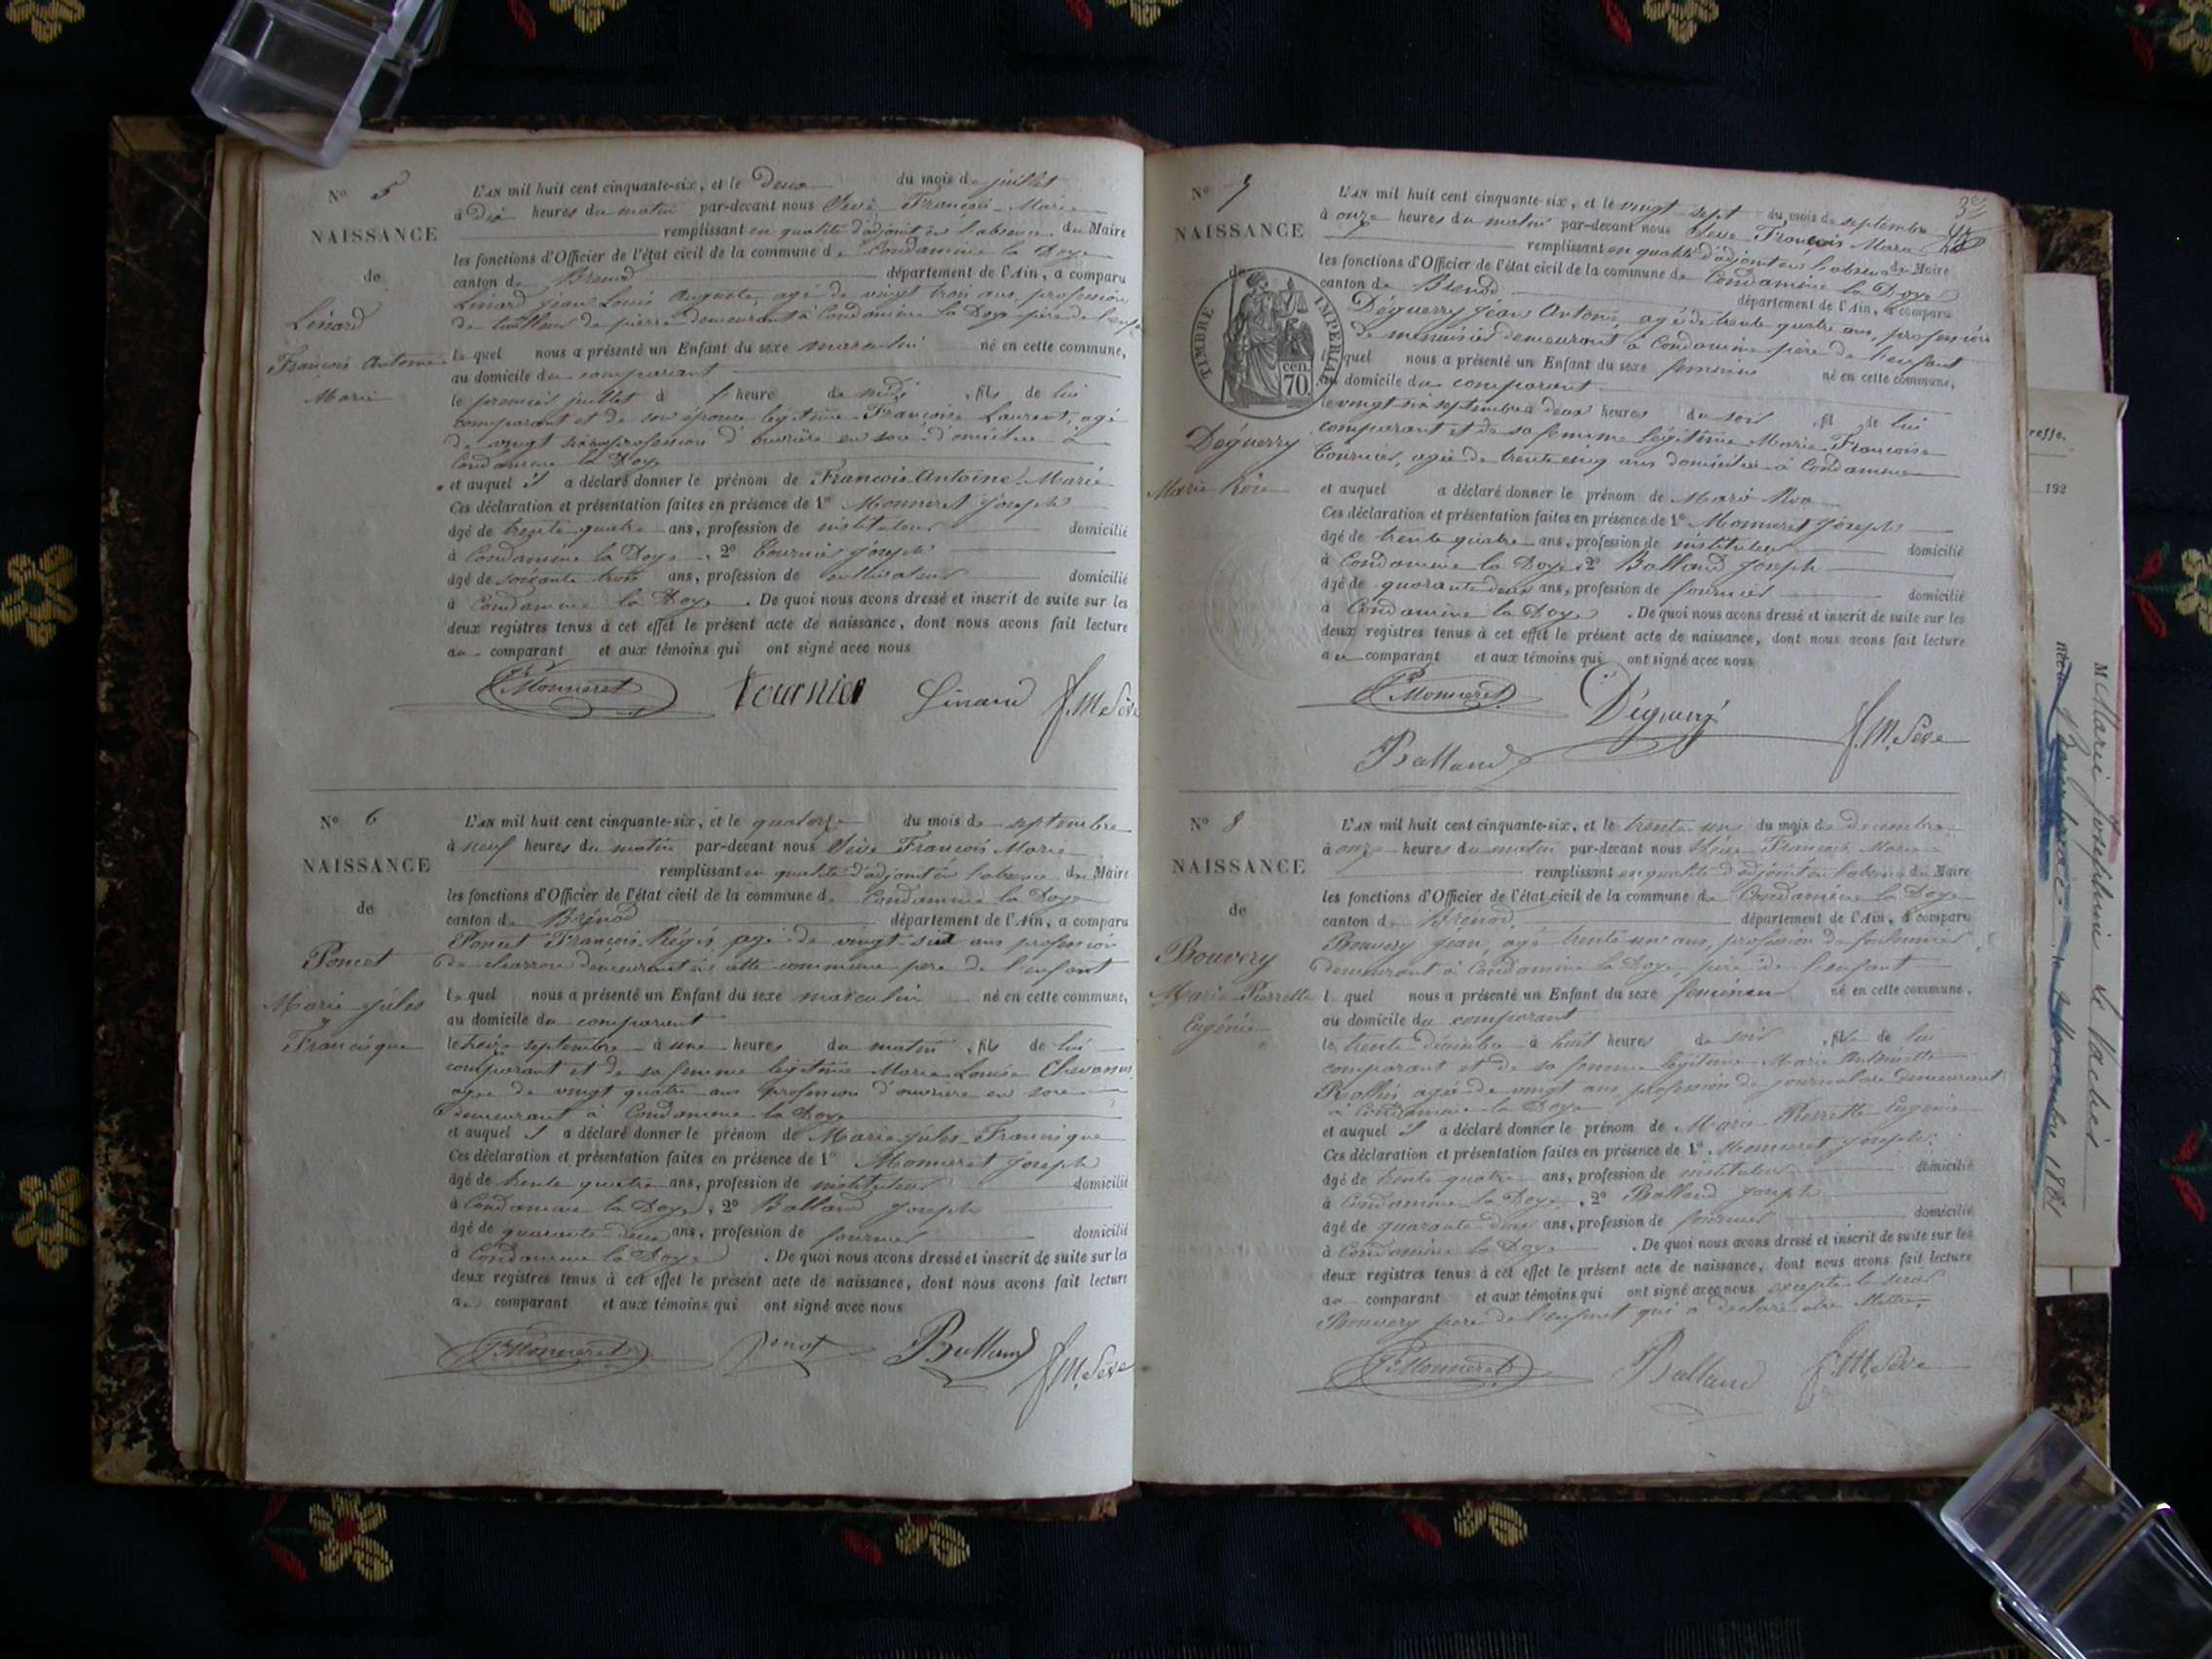 N° 5
NAISSANCE
de
Linard
François Antoine
Marie
L'AN mil huit cent cinquante-six, et le Deux du mois de juillet
à Dix heures du matin par-devant nous Sève François Marie
remplissant en qualité d'adjoint en l'absence du Maire
les fonctions d'Officier de l'état civil de la commune de Condamine la Doye
canton de Brenod département de l'Ain, a comparu
Linard Jean Louis Auguste, agé de vingt trois ans, profession
de tailleur de pierre demeurant à Condamine la Doye père de l'enfant
lequel nous a présenté un Enfant du sexe masculin né en cette commune,
au domicile du comparant
le premier juillet à heure de midi, fils de lui
comparant et de son épouse légitime Françoise Laurent, agé
de vingt six ans profession d'ouvrière en soie domiciliée à
Condamine la Doye
et auquel il a déclaré donner le prénom de François Antoine Marie
Ces déclaration et présentation faites en présence de 1° Monneret Joseph
âgé de trente quatre ans, profession de instituteur domicilié
à Condamine la Doye, 2° Tournier Joseph
âgé de soixante trois ans, profession de cultivateur domicilié
à Condamine la Doye. De quoi nous avons dressé et inscrit de suite sur les
deux registres tenus à cet effet le présent acte de naissance, dont nous avons fait lecture
au comparant et aux témoins qui ont signé avec nous
Monneret Tournier Linard f.M. Sève
N° 6
NAISSANCE
de
Poncet
Marie Jules
Francisque
L'AN mil huit cent cinquante-six, et le quatorze du mois de septembre
à neuf heures du matin par-devant nous Sève François Marie
remplissant en qualité d'adjoint en l'absence du Maire
les fonctions d'Officier de l'état civil de la commune de Condamine la Doye
canton de Brénod département de l'Ain, a comparu
Poncet François Régis agé de vingt-six ans profession
de charron demeurant en cette commune père de l'enfant
lequel nous a présenté un Enfant du sexe masculin né en cette commune,
au domicile du comparant
le treize septembre à une heures du matin, fils de lui
comparant et de sa femme légitime Marie Louise
agée de vingt quatre ans profession d'ouvrière en soie
demeurant à Condamine la Doye
et auquel il a déclaré donner le prénom de Marie Jules Francisque
Ces déclaration et présentation faites en présence de 1° Monneret Joseph
âgé de trente quatre ans, profession de instituteur domicilié
à Condamine la Doye, 2° Balland Joseph
âgé de quarante deux ans, profession de fournier domicilié
à Condamine la Doye. De quoi nous avons dressé et inscrit de suite sur les
deux registres tenus à cet effet le présent acte de naissance, dont nous avons fait lecture
au comparant et aux témoins qui ont signé avec nous
Monneret Poncet Balland f.M. Sève
N° 7
NAISSANCE
de
TIMBRE IMPERIAL
70 cen.
Déguerry
Marie Rose
L'AN mil huit cent cinquante-six, et le vingt sept du mois de septembre
à onze heures du matin par-devant nous Sève François Marie
remplissant en qualité d'adjoint en l'absence du Maire
les fonctions d'Officier de l'état civil de la commune de Condamine la Doye
canton de Brenod département de l'Ain, a comparu
Déguerry Jean Antoine, agé de trente quatre ans, profession
de menuisier demeurant à Condamine père de l'enfant
lequel nous a présenté un Enfant du sexe féminin né en cette commune,
au domicile du comparant
le vingt six septembre à deux heures du soir, fil de lui
comparant et de sa femme légitime Marie Françoise
Tournier, agée de trente cinq ans domiciliée à Condamine
et auquel a déclaré donner le prénom de Marie Rose
Ces déclaration et présentation faites en présence de 1° Monneret Joseph
âgé de trente quatre ans, profession de instituteur domicilié
à Condamine la Doye 2° Balland Joseph
âgé de quarante deux ans, profession de fournier domicilié
à Condamine la Doye. De quoi nous avons dressé et inscrit de suite sur les
deux registres tenus à cet effet le présent acte de naissance, dont nous avons fait lecture
au comparant et aux témoins qui ont signé avec nous
Monneret Déguerry f.M. Sève
Balland
N° 8
NAISSANCE
de
Bouvery
Marie Pierrette
Eugénie
L'AN mil huit cent cinquante-six, et le trente un du mois de décembre
à onze heures du matin par-devant nous Sève François Marie
remplissant en qualité d'adjoint en l'absence du Maire
les fonctions d'Officier de l'état civil de la commune de Condamine la Doye
canton de Brénod département de l'Ain, a comparu
Bouvery Jean, agé trente un ans, profession de
demeurant à Condamine la Doye, père de l'enfant
lequel nous a présenté un Enfant du sexe féminin né en cette commune,
au domicile du comparant
le trente décembre à huit heures du soir, fille de lui
comparant et de sa femme légitime Marie Antoinette
agée de vingt ans, profession de journalière demeurant
à Condamine la Doye
et auquel il a déclaré donner le prénom de Marie Pierrette Eugénie
Ces déclaration et présentation faites en présence de 1° Monneret Joseph
âgé de trente quatre ans, profession de instituteur domicilié
à Condamine la Doye, 2° Balland Joseph
âgé de quarante deux ans, profession de fournier domicilié
à Condamine la Doye. De quoi nous avons dressé et inscrit de suite sur les
deux registres tenus à cet effet le présent acte de naissance, dont nous avons fait lecture
au comparant et aux témoins qui ont signé avec nous excepté le sieur
Bouvery père de l'enfant qui a déclaré ne
Monneret Balland f.M. Sève
192
M Marie Joséphine
novembre 1881